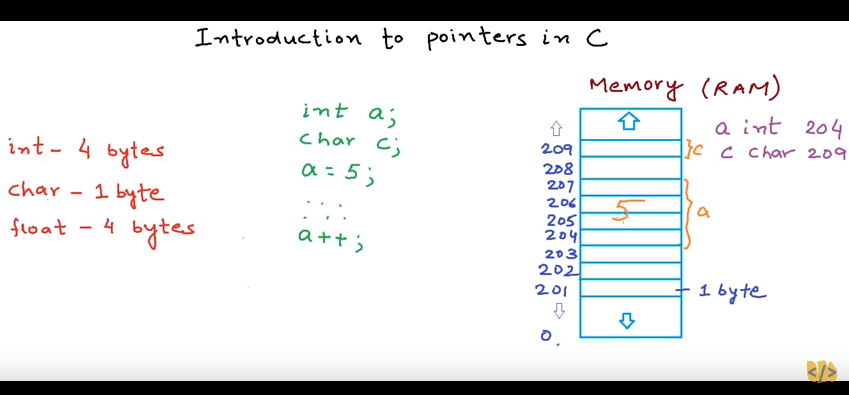 Introduction to pointers in C
int - 4 bytes
char - 1 byte
float - 4 bytes
int a;
char c;
a = 5;
. . .
. . .
a++;
Memory (RAM)
209
208
207
206
205
204
203
202
201
0
5
}c
}a
1 byte
a int 204
c char 209
</>